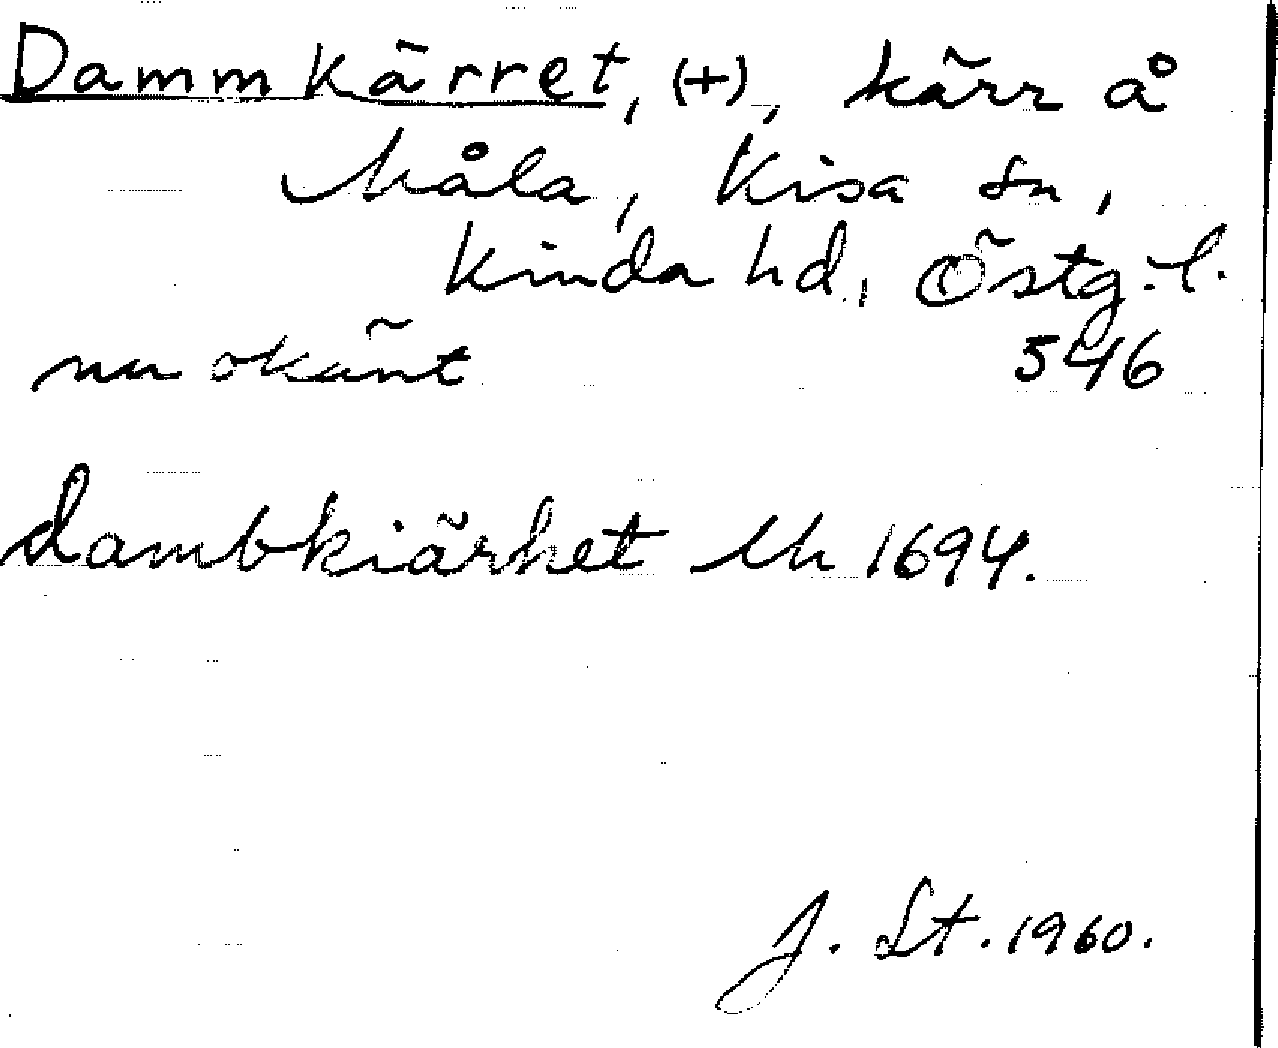 Dammkärret, (+), kärr å
Måla, Kisa sn,
Kinda hd, Östg. l.
nu okänt 546
dambkiärhet Uh 1694.
J. St. 1960.